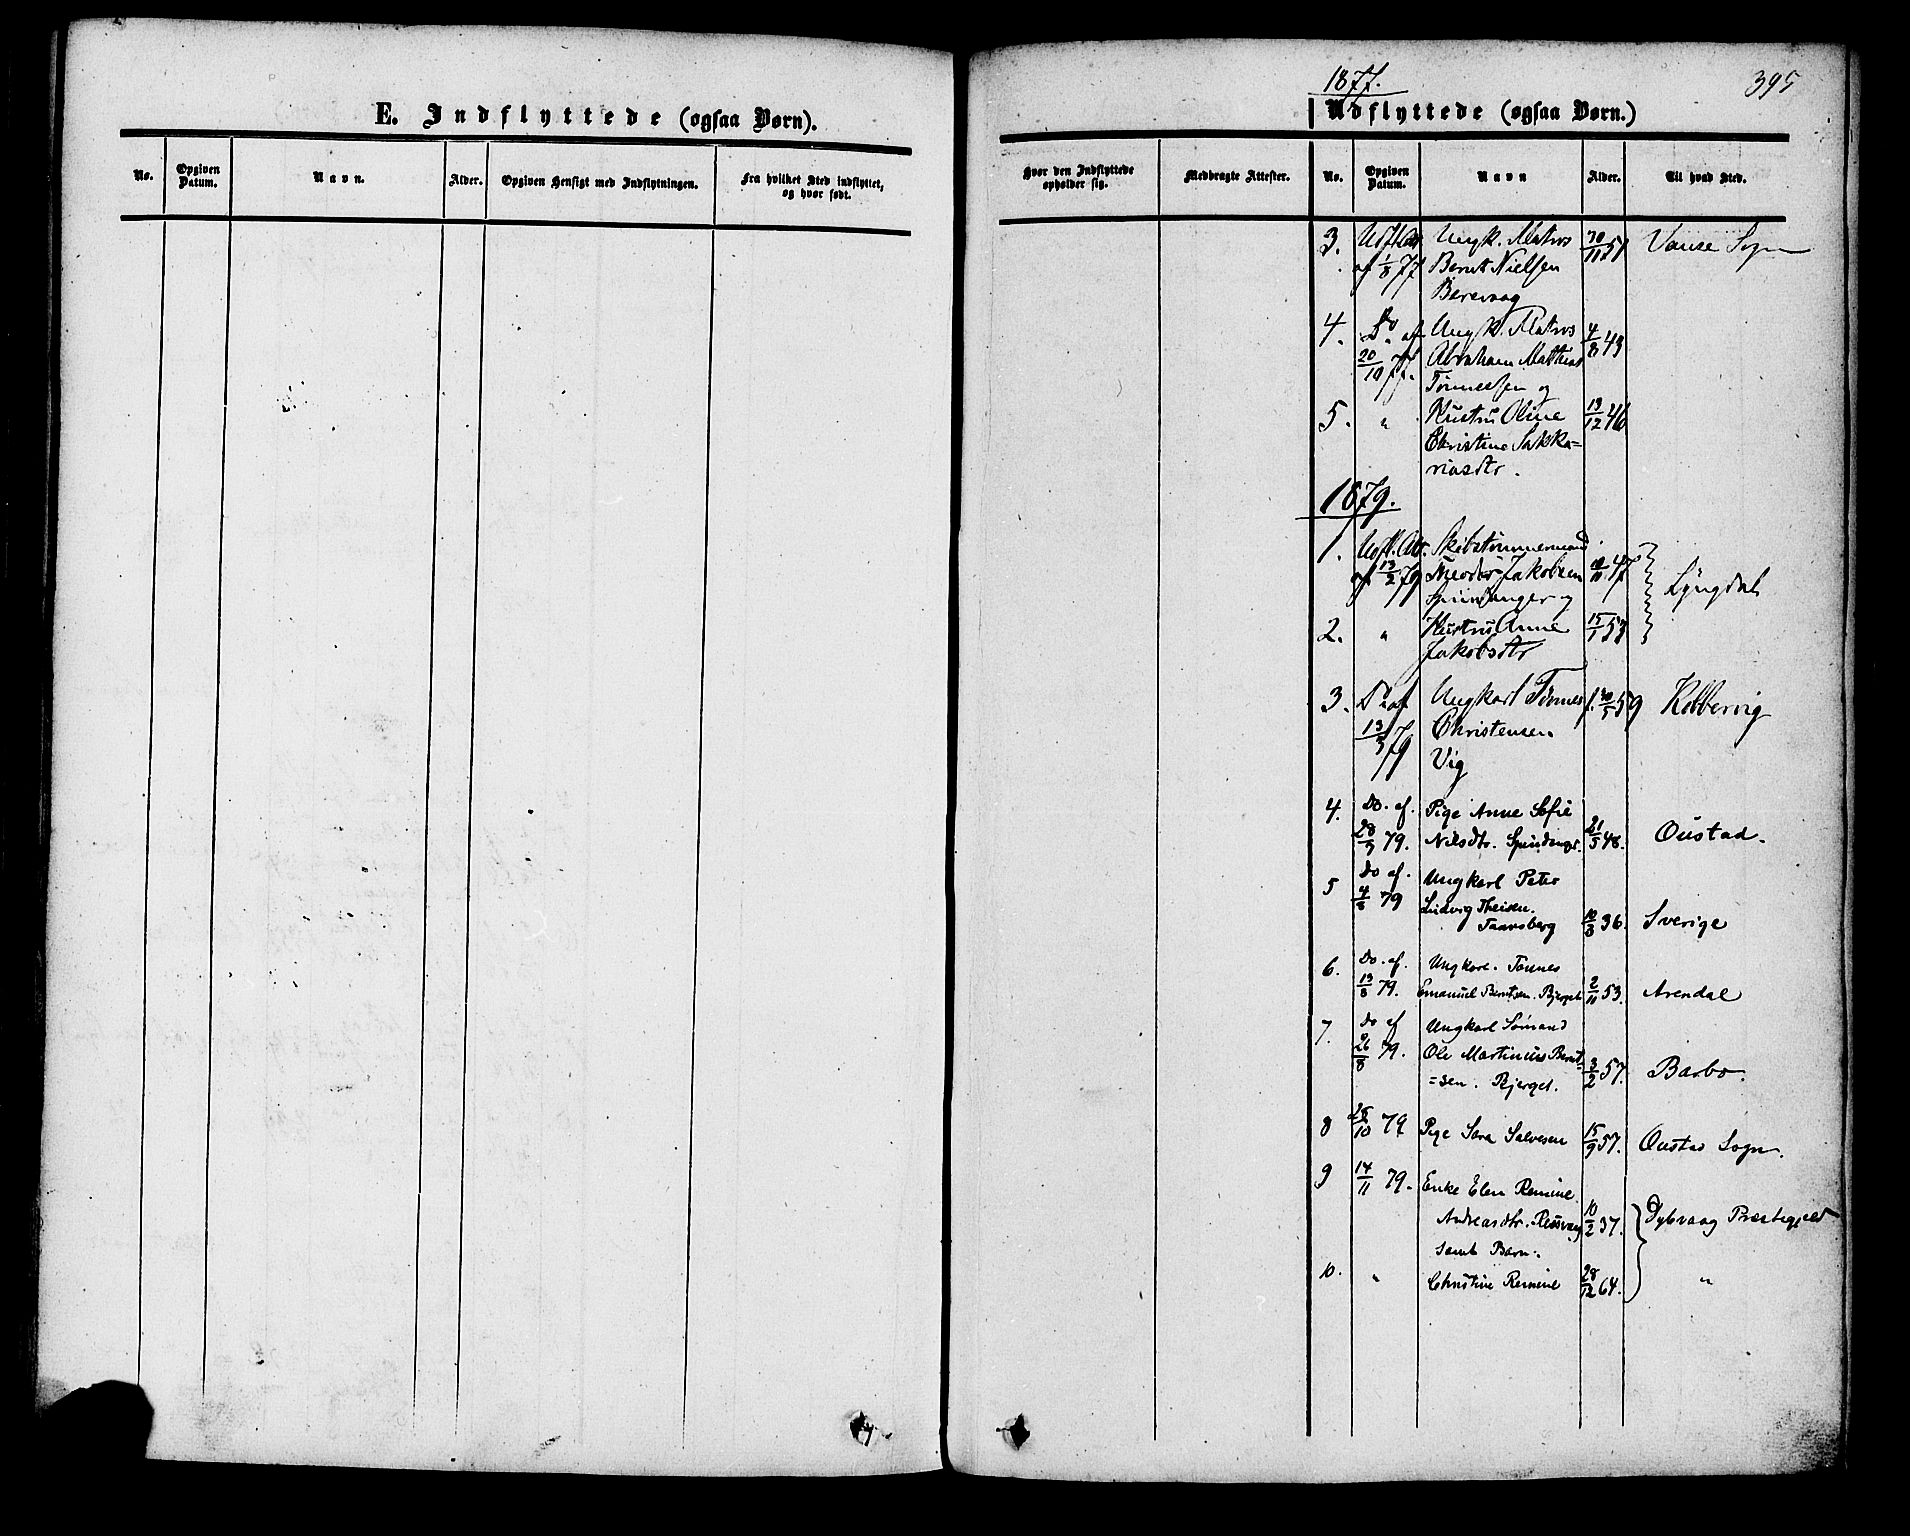 E. Indflyttede (ogsaa Børn).
No.
Opgiven Datum.
Navn.
Alder.
Opgiven Hensigt med Indflytningen.
Fra hvilket Sted indflyttet, og hvor født.
1877.
395
Udflyttede (ogsaa Børn.)
Hvor den Indflyttede opholder sig.
Medbragte Attester.
No.
Opgiven Datum.
Navn
Alder.
Til hvad Sted.
3. Udfl. Att. Ungk. Matros 30/11 51 Vanse Sogn
af 1/8 77 Bernt Nielsen
Berevaag
4. Do. af Ungk. Matros 4/8 43
20/10 77. Abraham Mathias
Tønnessen og
5. " Hustru Oline 13/12 46
Christine Sakka=
riasdtr.
1879.
1. Udfl. Att. Skibstømmermand
af 13/2 79 Theodor Jakobsen 47 Lyngdal
Spindanger og
2. " Hustru Anne 15/1 53
Jakobsdtr
3. Do af Ungkarl Tønnes f. 59 Kobbervig
13/3 79 Christensen
Vig
4. Do. af. Pige Anne Sofie
28/3 79. Nilsdtr. Spindanger. 21/5 48. Oustad.
5 Do af. Ungkarl Peter
79 Ludvig Theisen.
Taansberg 10/8 36. Sverige
6. Do. af. Ungkarl. Tønnes
13/8 79. Emanuel Berntsen. Bjerget 2/11 53. Arendal
7. Do af Ungkarl Sømand
26/8 79. Ole Martinius Bernt=
=sen. Bjerget. 3/2 57. Barbo.
8 28/10 79 Pige Sara Salvesen 15/9 57. Oustad Sogn.
9 14/11 79. Enke Elen Remine
Andreasdtr. Rossvaag 10/2 37. Dybvaag Præstegjeld
samt Barn:
10. " Christine Remine 28/12 64. "